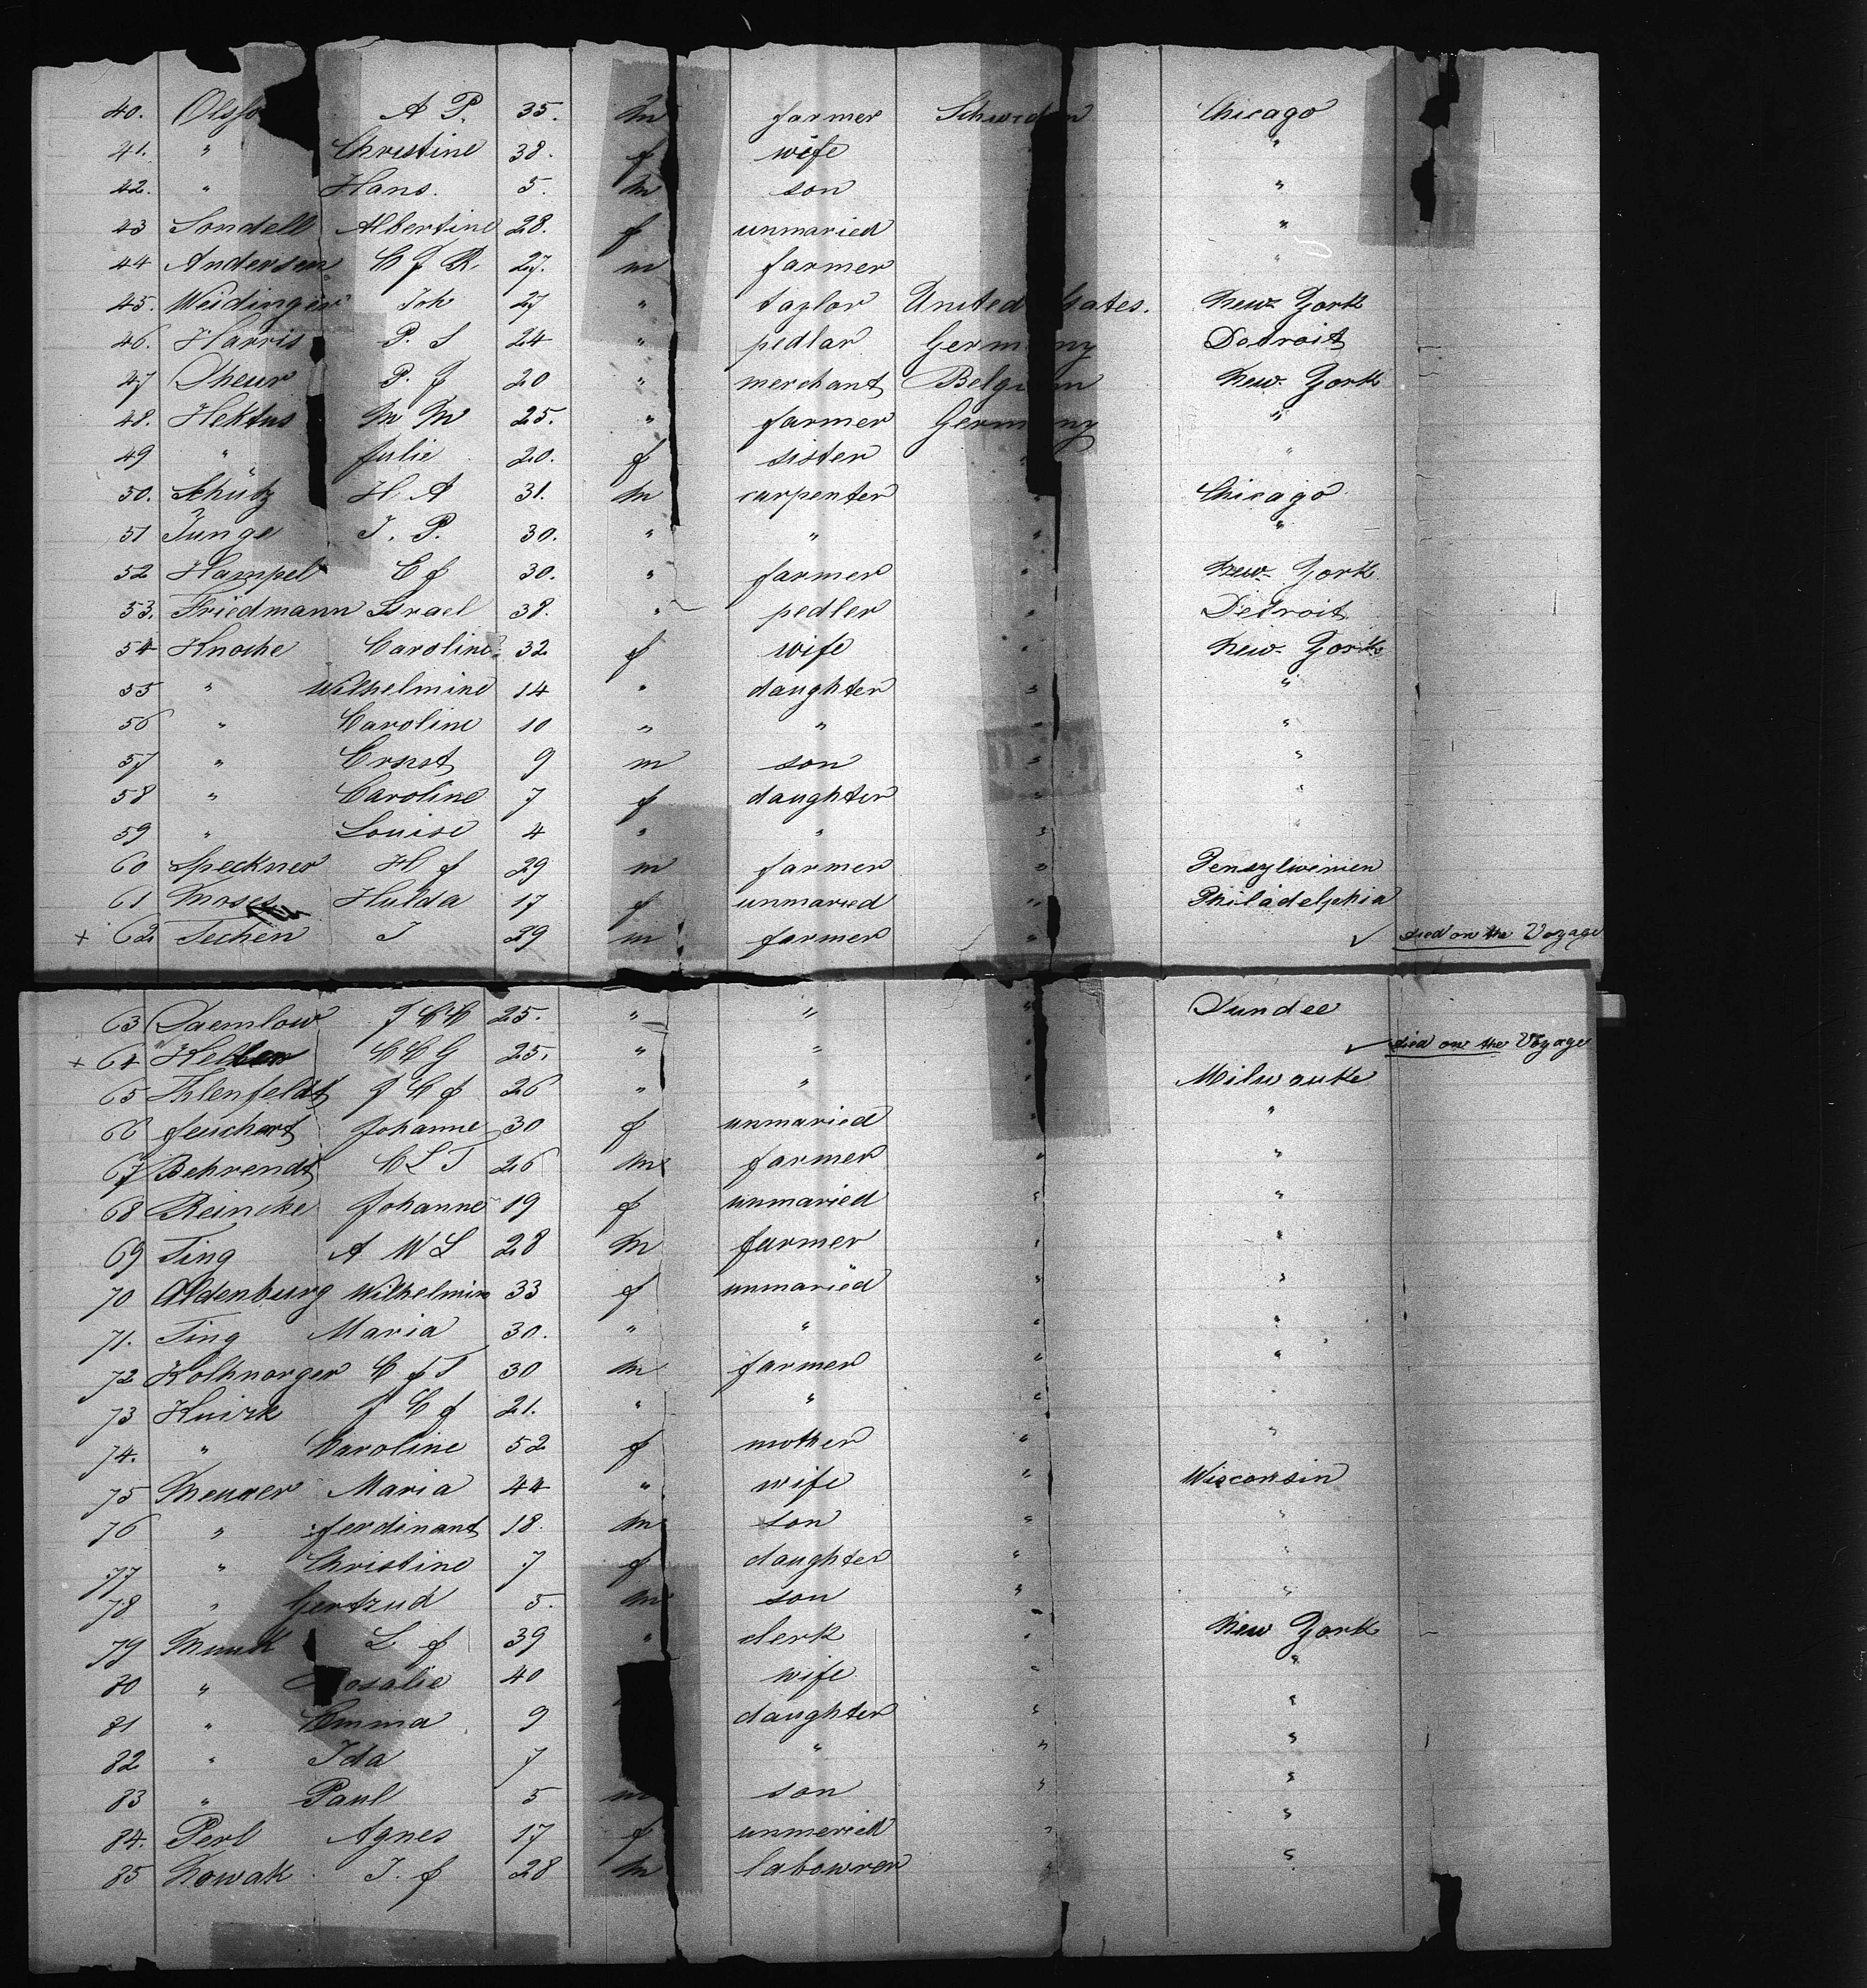 40. Olsso A P. 35. m farmer Schweden Chicago
41. " Christine 38. f wife "
42. " Hans. 5. m son "
43 Sondell Albertine 28. f unmaried "
44 Andersen C J R. 27. m farmer "
45. Weidinger Joh 27 " taylor United States. New-York
46. Harris P. S 24 " pedlar Germany Detroit
47 P. J 20 " merchant Belgium New-York
48. Hektus M M 25. " farmer Germany "
49 " Julie 20. f sister " "
50. Schütz H A 31. m carpenter " Chicago
51 Junge J. P. 30. " " " "
52 Hampel C f 30. " farmer " New-York
53. Friedmann Israel 38. " pedler " Detroit
54 Knoche Caroline 32 f wife " New-York
55 " Wilhelmine 14 " daughter " "
56 " Caroline 10 " " " "
57 " Ernst 9 m son " "
58 " Caroline 7 f daughter " "
59 " Louise 4 " " " "
60 Speckner H f 29 m farmer " Pensylwinien
61 Moses Hulda 17 f unmaried " Philadelphia
+ 62 Techen J 29 m farmer " ✓ died on the Voyage
63 Daemlow J C C 25. " " " Dundee
+ 64 C C G 25. " " " ✓ died on the Voyage
65 Ihlenfeldt J C f 26 " " " Milwauke
66 feuchart Johanne 30 f unmaried " "
67 Behrendt C L T 26 m farmer " "
68 Reincke Johanne 19 f unmaried " "
69 Ting A W L 28 m farmer " "
70 Oldenburg Wilhelmine 33 f unmaried " "
71. Ting Maria 30. " " " "
72 C f T 30 m farmer " "
73 J C f 21. " " " "
74. " Caroline 52 f mother " "
75 Maria 44 " wife " Wisconsin
76 " ferdinant 18. m son " "
77 " Christine 7 f daughter " "
78 " Gertrud 5. m son " "
79 Munk L f 39 " clerk " New York
80 " Rosalie 40 wife " "
81 " Emma 9 daughter " "
82 " Ida 7 " " "
83 " Paul 5 m son " "
84. Perl Agnes 17 f unmeried " "
85 Nowak J. f 28 m labowrer "